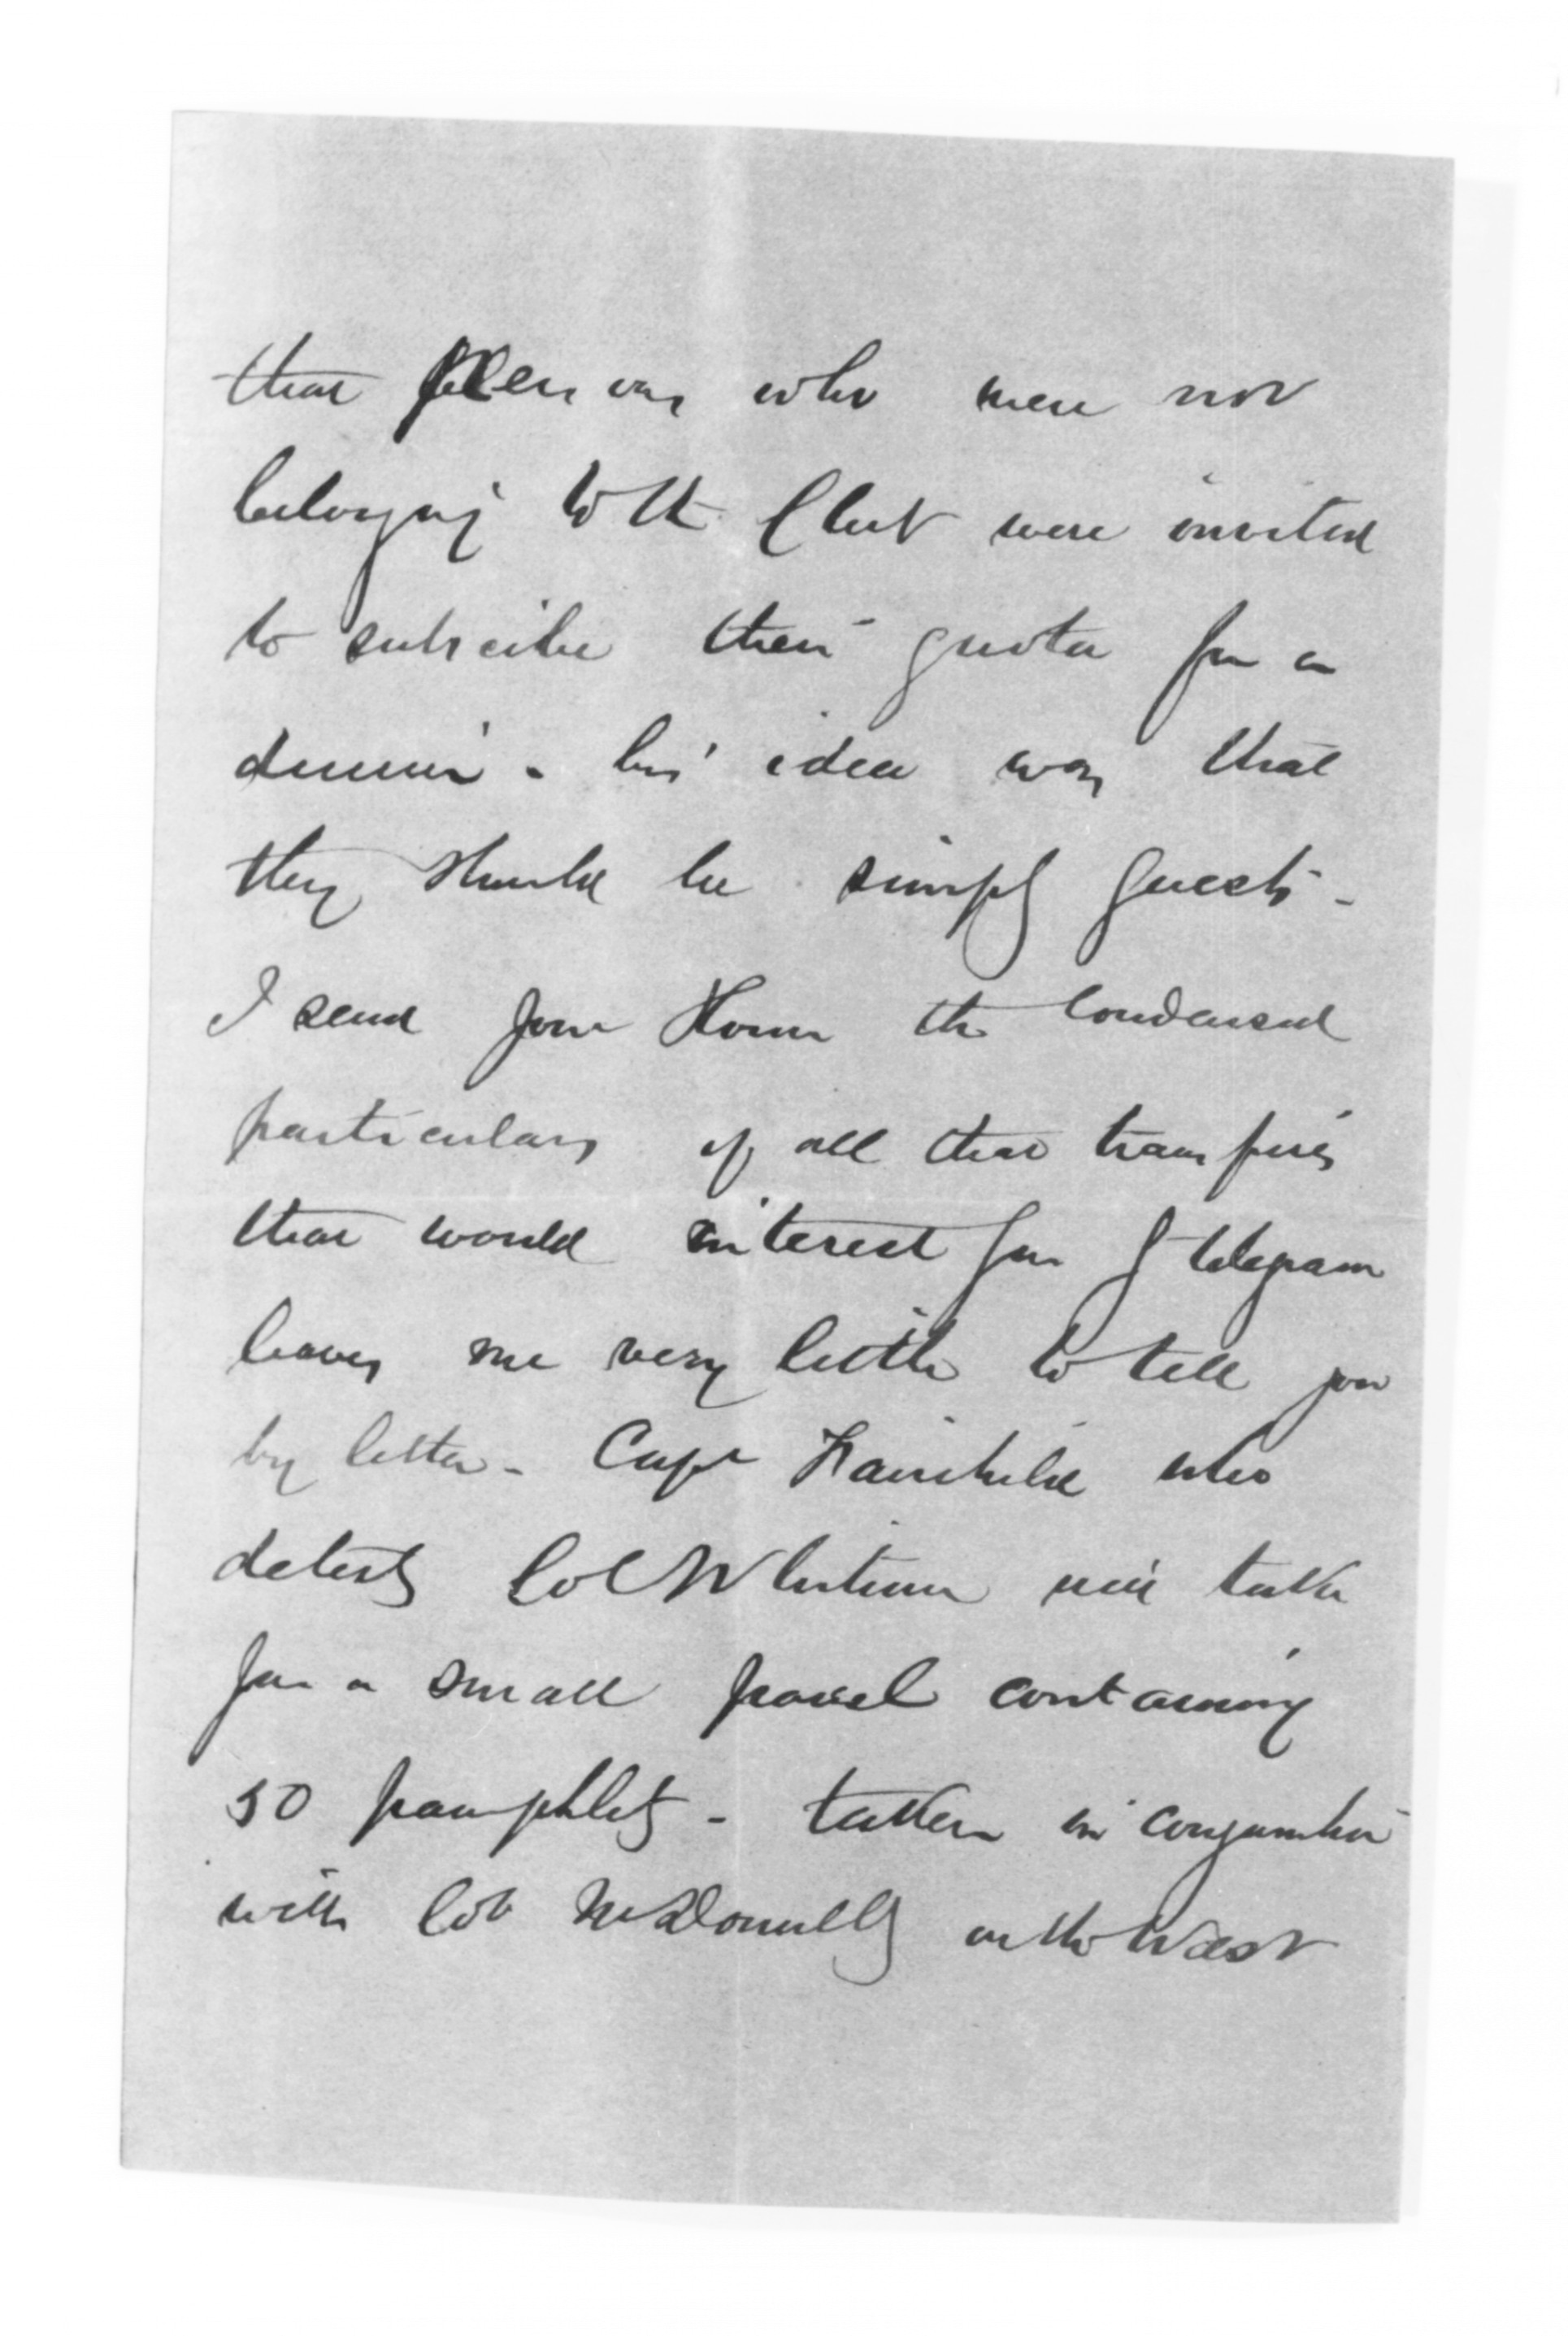 that persons who were not
belonging to the Club were invited
to subscribe their quota for a
dinner - his idea was that
they should be simply guests -
I send from Home the condensed
particulars of all that transpires
that would interest you & telegram
leaves me very little to tell you
by letter - Capt Fairchild who
detests Col Whitmore will take
you a small parcel containing
50 pamphlets - taken in conjunction
with Col McDonnell's on the West